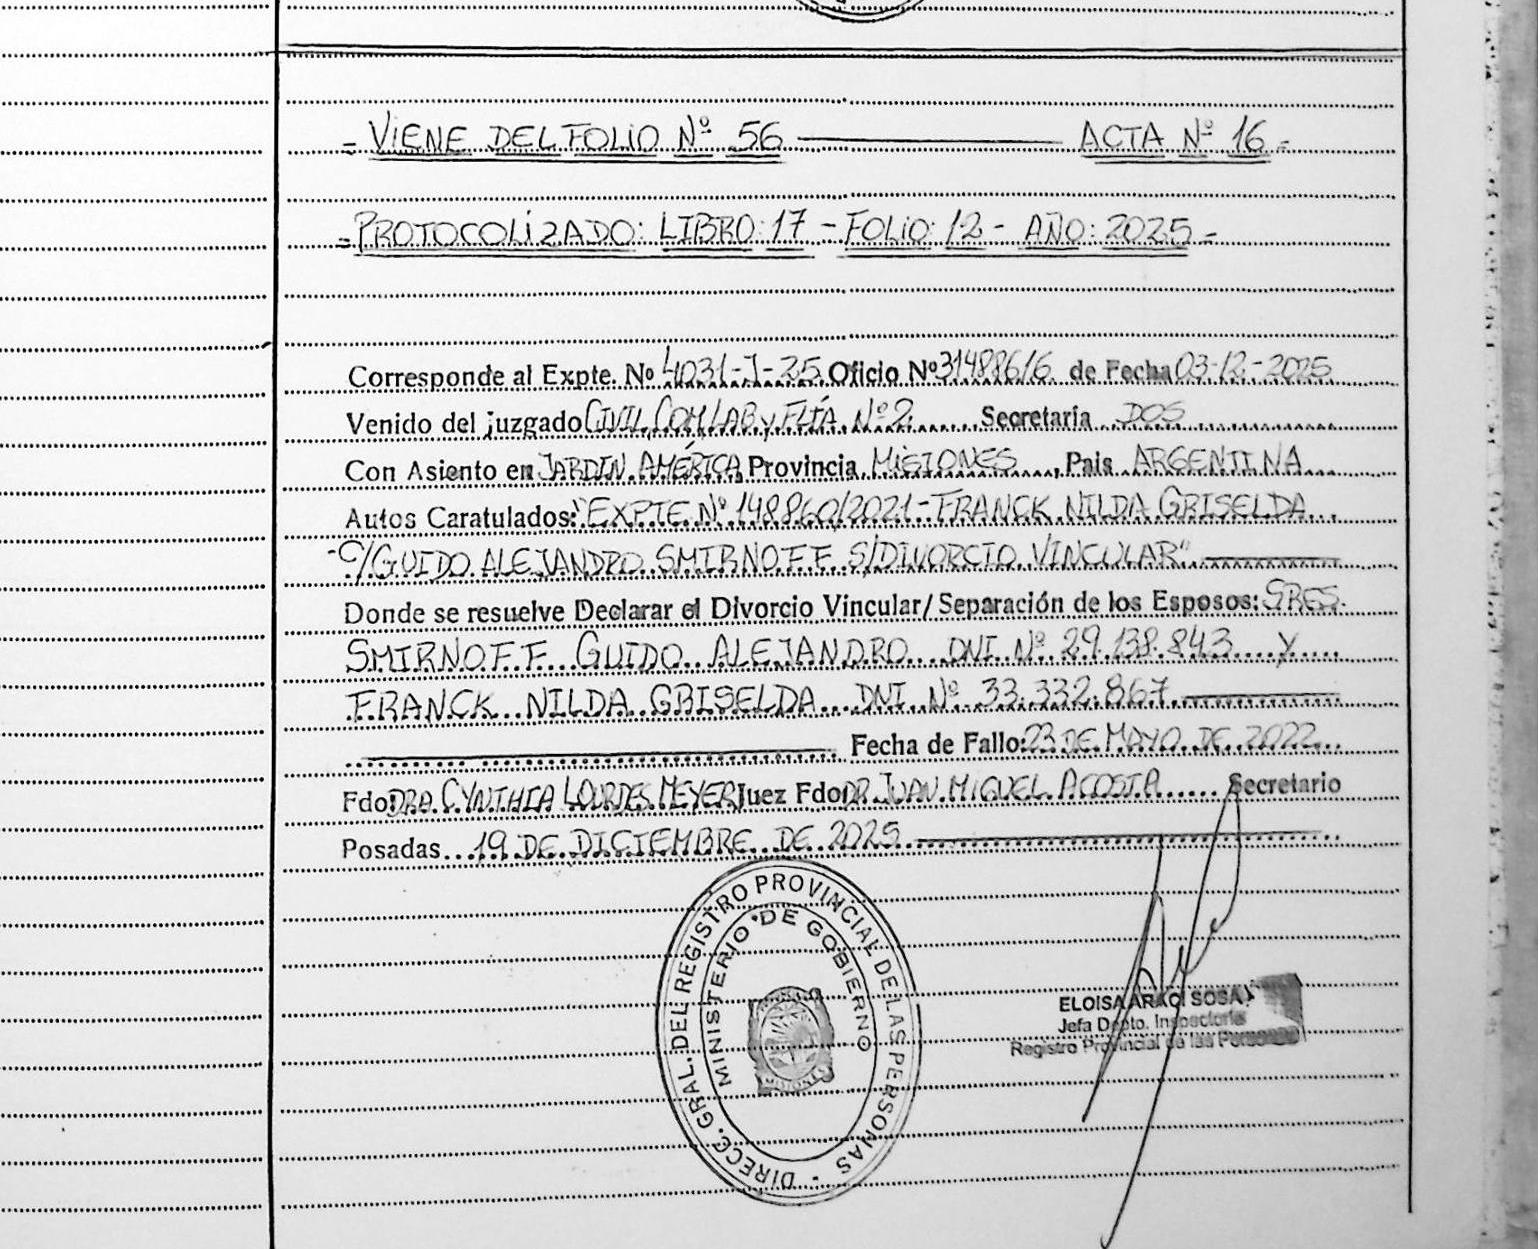 - VIENE DEL FOLIO Nº 56 ——— ACTA Nº 16 -
- PROTOCOLIZADO: LIBRO: 17 - FOLIO: 12 - AÑO: 2025 -
Corresponde al Expte. Nº 4031-J-25 Oficio Nº 31488616 de Fecha 03-12-2025
Venido del juzgado CIVIL, COM, LAB y FLIA. Nº 2 Secretaria DOS
Con Asiento en JARDIN AMÉRICA Provincia MISIONES, Pais ARGENTINA
Autos Caratulados: "EXPTE Nº 148860/2021 - FRANCK NILDA GRISELDA
- C/GUIDO ALEJANDRO SMIRNOFF S/DIVORCIO VINCULAR"
Donde se resuelve Declarar el Divorcio Vincular/Separación de los Esposos: SRES.
SMIRNOFF GUIDO ALEJANDRO DNI Nº 29.138.843 y
FRANCK NILDA GRISELDA DNI Nº 33.332.867
Fecha de Fallo: 23 DE MAYO DE 2022
Fdo DRA. CYNTHIA LOURDES MEYER Juez Fdo DR. JUAN MIGUEL ACOSTA Secretario
Posadas 19 DE DICIEMBRE DE 2025
DIRECC. GRAL. DEL REGISTRO PROVINCIAL DE LAS PERSONAS
MINISTERIO DE GOBIERNO
MISIONES
ELOISA ARACI SOSA
Jefa Depto. Inspectoria
Registro Provincial de las Personas